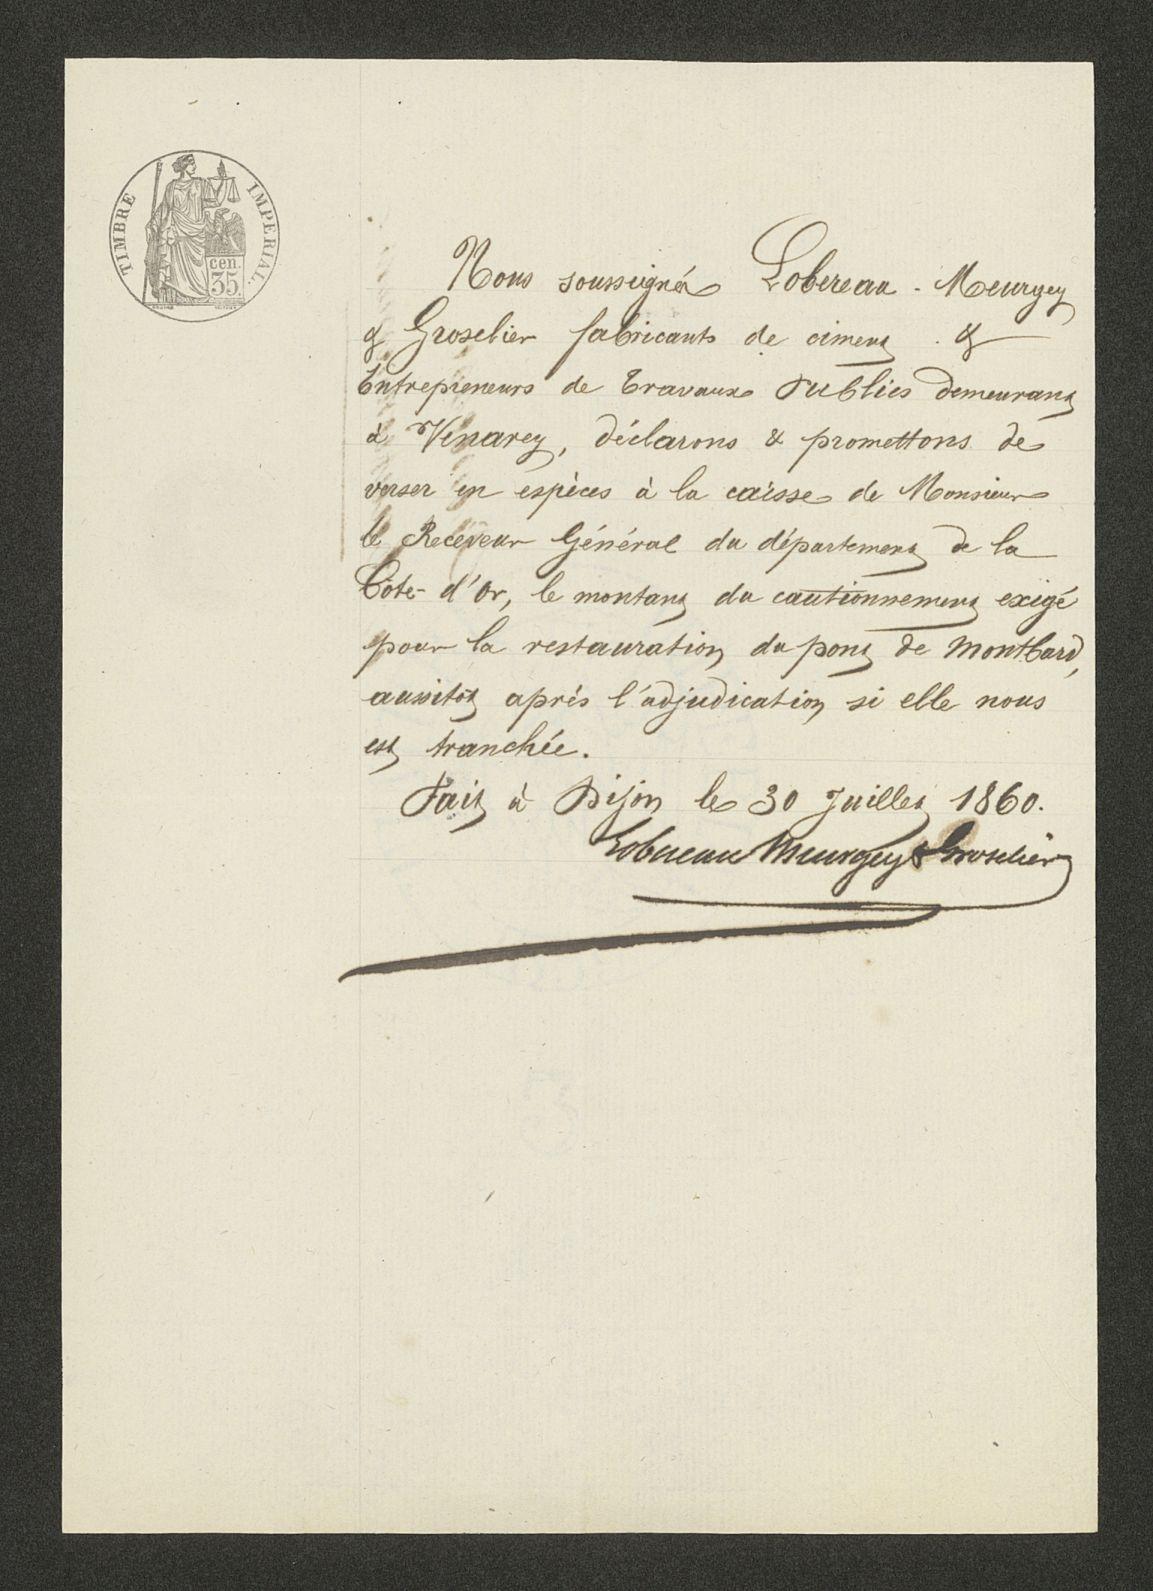 TIMBRE IMPERIAL.
cen.
35.
Nous soussignés Lobereau - Meurgey
& Groselier fabricants de ciment &
Entrepreneurs de Travaux Publics demeurant
à Venarey, déclarons & promettons de
verser en espèces à la caisse de Monsieur
le Receveur Général du département de la
Côte-d'Or, le montant du cautionnement exigé
pour la restauration du pont de Montbard,
aussitôt après l'adjudication si elle nous
est tranchée.
Fait à Dijon le 30 Juillet 1860.
Lobereau Meurgey & Groselier